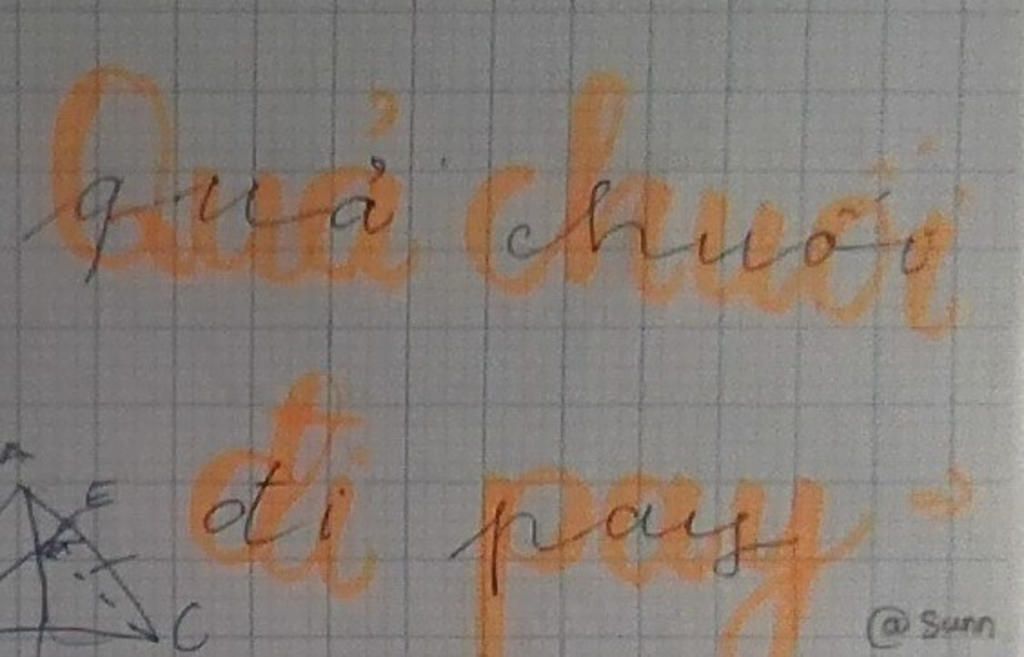 Quả chuối
quả chuối
đi pay
đi pay
A
E
C
@ Sunn